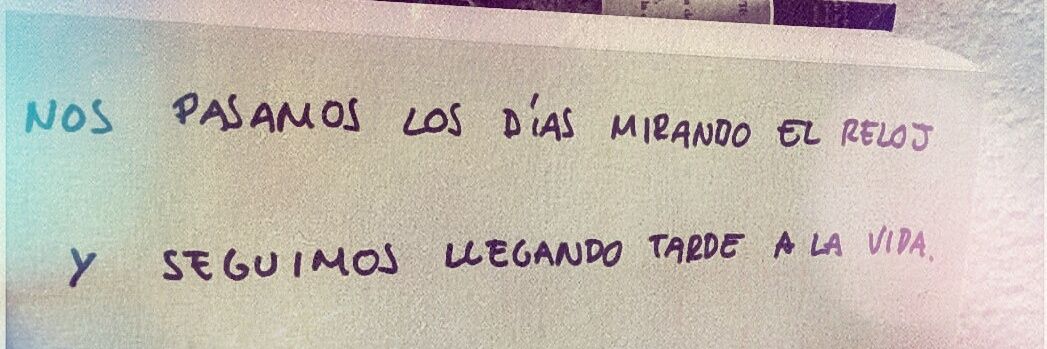 NOS PASAMOS LOS DÍAS MIRANDO EL RELOJ
Y SEGUIMOS LLEGANDO TARDE A LA VIDA.